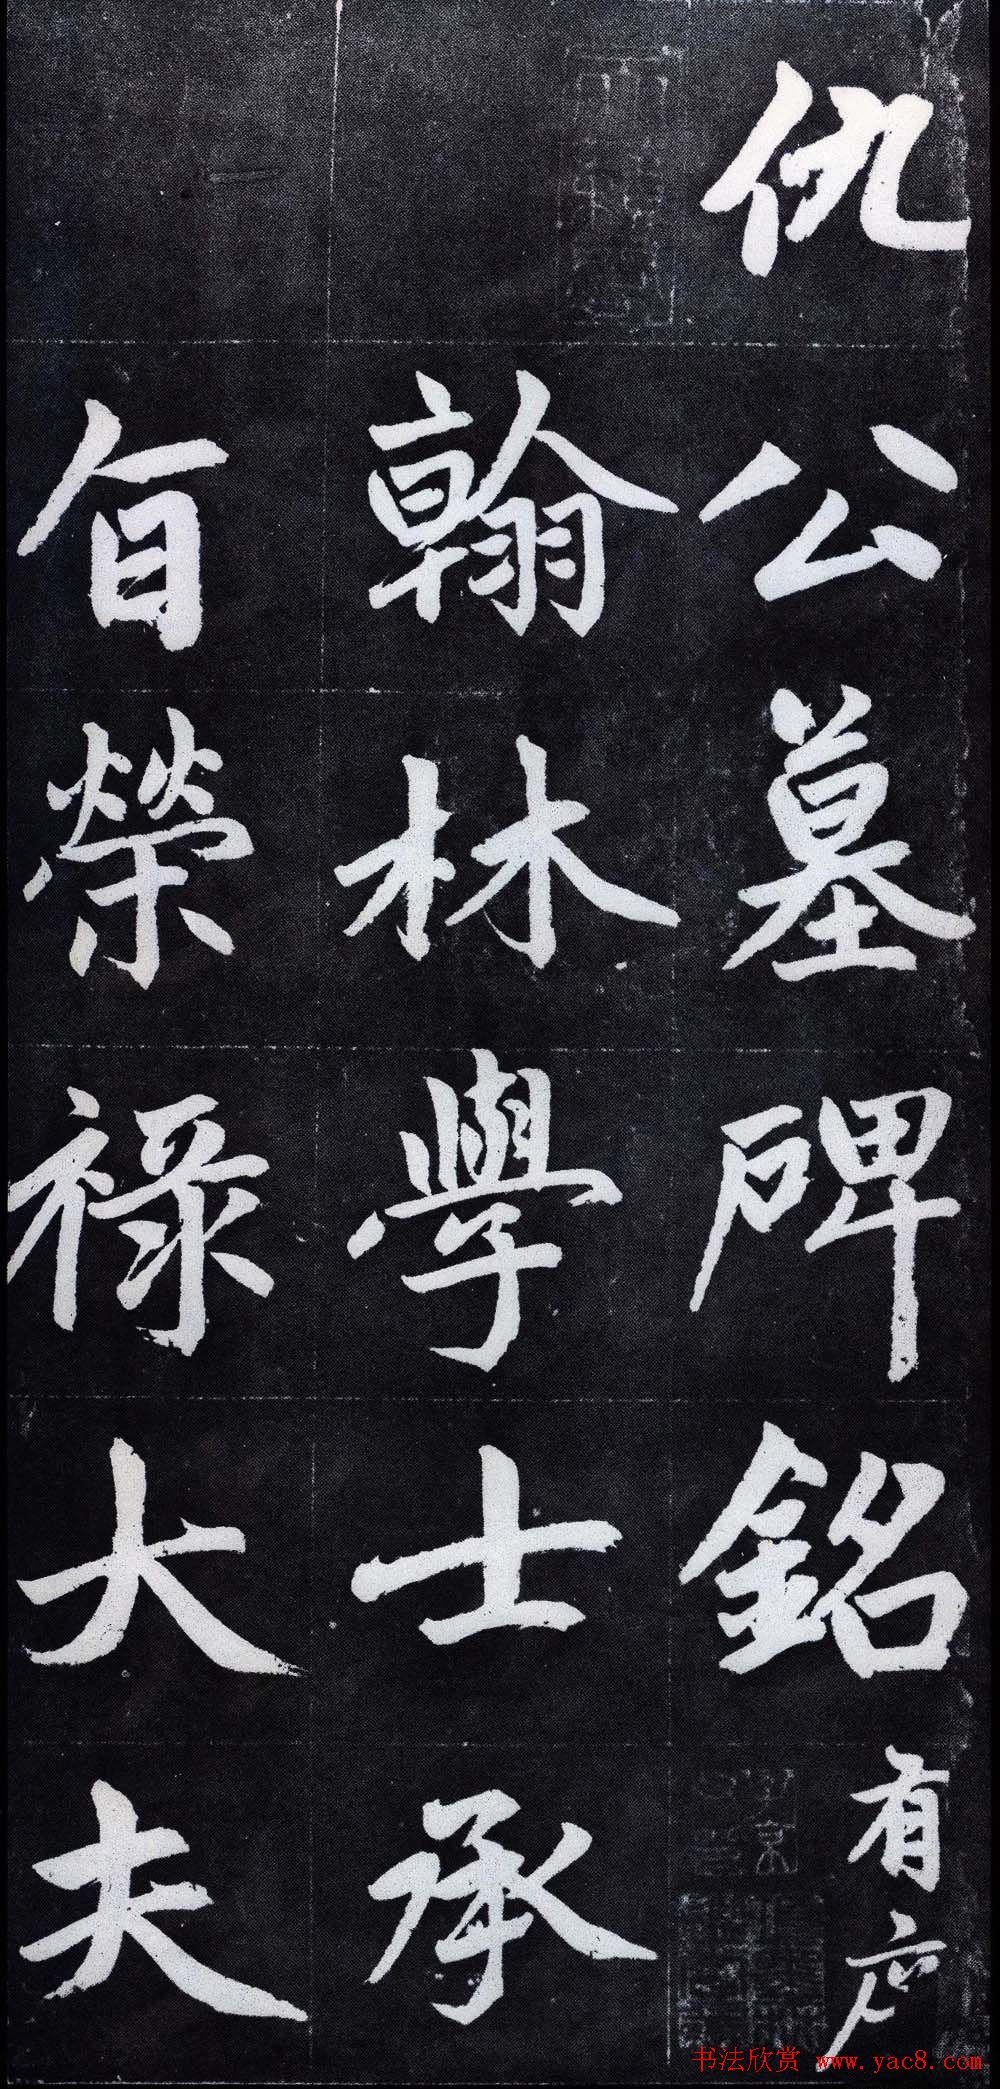 仇公墓碑銘有序
翰林學士承
旨榮祿大夫
书法欣赏 www.yac8.com